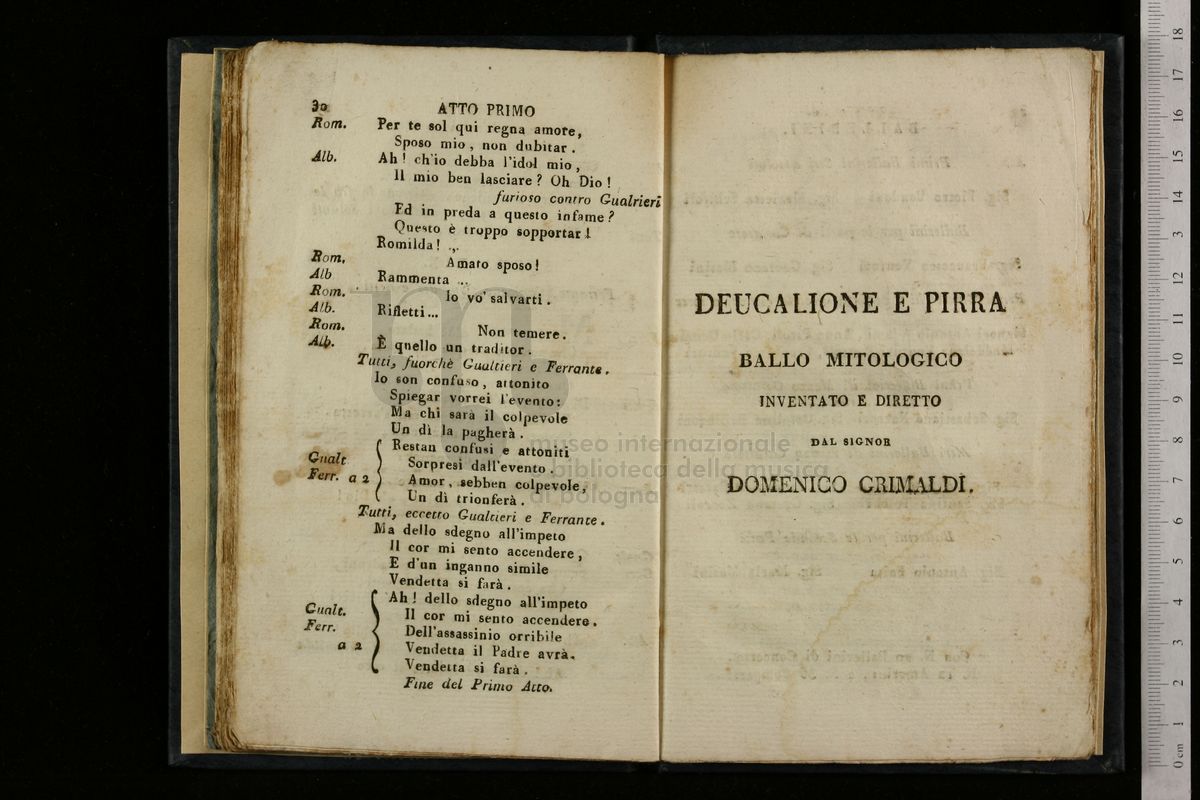 30 ATTO PRIMO
Rom. Per te sol qui regna amore,
Sposo mio, non dubitar.
Alb. Ah! ch'io debba l'idol mio,
Il mio ben lasciare? Oh Dio!
furioso contro Gualrieri
Ed in preda a questo infame?
Questo è troppo sopportar!
Romilda! ...
Rom. Amato sposo!
Alb Rammenta ...
Rom. Io vo' salvarti.
Alb. Rifletti...
Rom. Non temere.
Alb. È quello un traditor.
Tutti, fuorchè Gualtieri e Ferrante.
Io son confuso, attonito
Spiegar vorrei l'evento:
Ma chi sarà il colpevole
Un dì la pagherà.
Restan confusi e attoniti
Gualt. Sorpresi dall'evento.
Ferr. a 2 Amor, sebben colpevole,
Un dì trionferà.
Tutti, eccetto Gualtieri e Ferrante.
Ma dello sdegno all'impeto
Il cor mi sento accendere,
E d'un inganno simile
Vendetta si farà.
Ah! dello sdegno all'impeto
Gualt. Il cor mi sento accendere.
Ferr. Dell'assassinio orribile
a 2 Vendetta il Padre avrà.
Vendetta si farà.
Fine del Primo Atto.
DEUCALIONE E PIRRA
BALLO MITOLOGICO
INVENTATO E DIRETTO
DAL SIGNOR
DOMENICO GRIMALDI.
museo internazionale
e biblioteca della musica
di bologna
0 cm 1 2 3 4 5 6 7 8 9 10 11 12 13 14 15 16 17 18